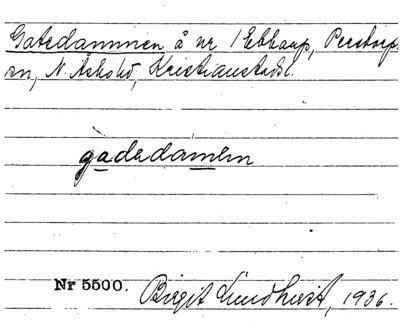 Gatedammen å nr 1 Ebbarp, Perstorp
sn, N. Åsbo hd, Kristianstads l.
gadedamen
Nr 5500. Birgit Lundkvist, 1936.